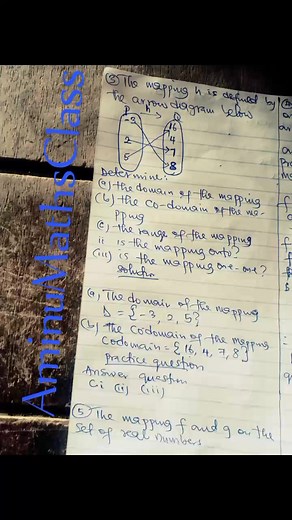 ③ The mapping h is defined by
the arrow diagram below
P h Q
-3 16
2 4
5 7
8
Determine:
(a) the domain of the mapping
(b) the co-domain of the ma-
pping
(c) the range of the mapping
ii is the mapping onto?
(iii) is the mapping one-one?
solution
(a) The domain of the mapping
D = {-3, 2, 5}
(b) the codomain of the mapping
Codomain = {16, 4, 7, 8}
practice question
Answer question
Ci (ii) (iii)
⑤ The mapping f and g on the
set of real numbers
AminuMathsClass